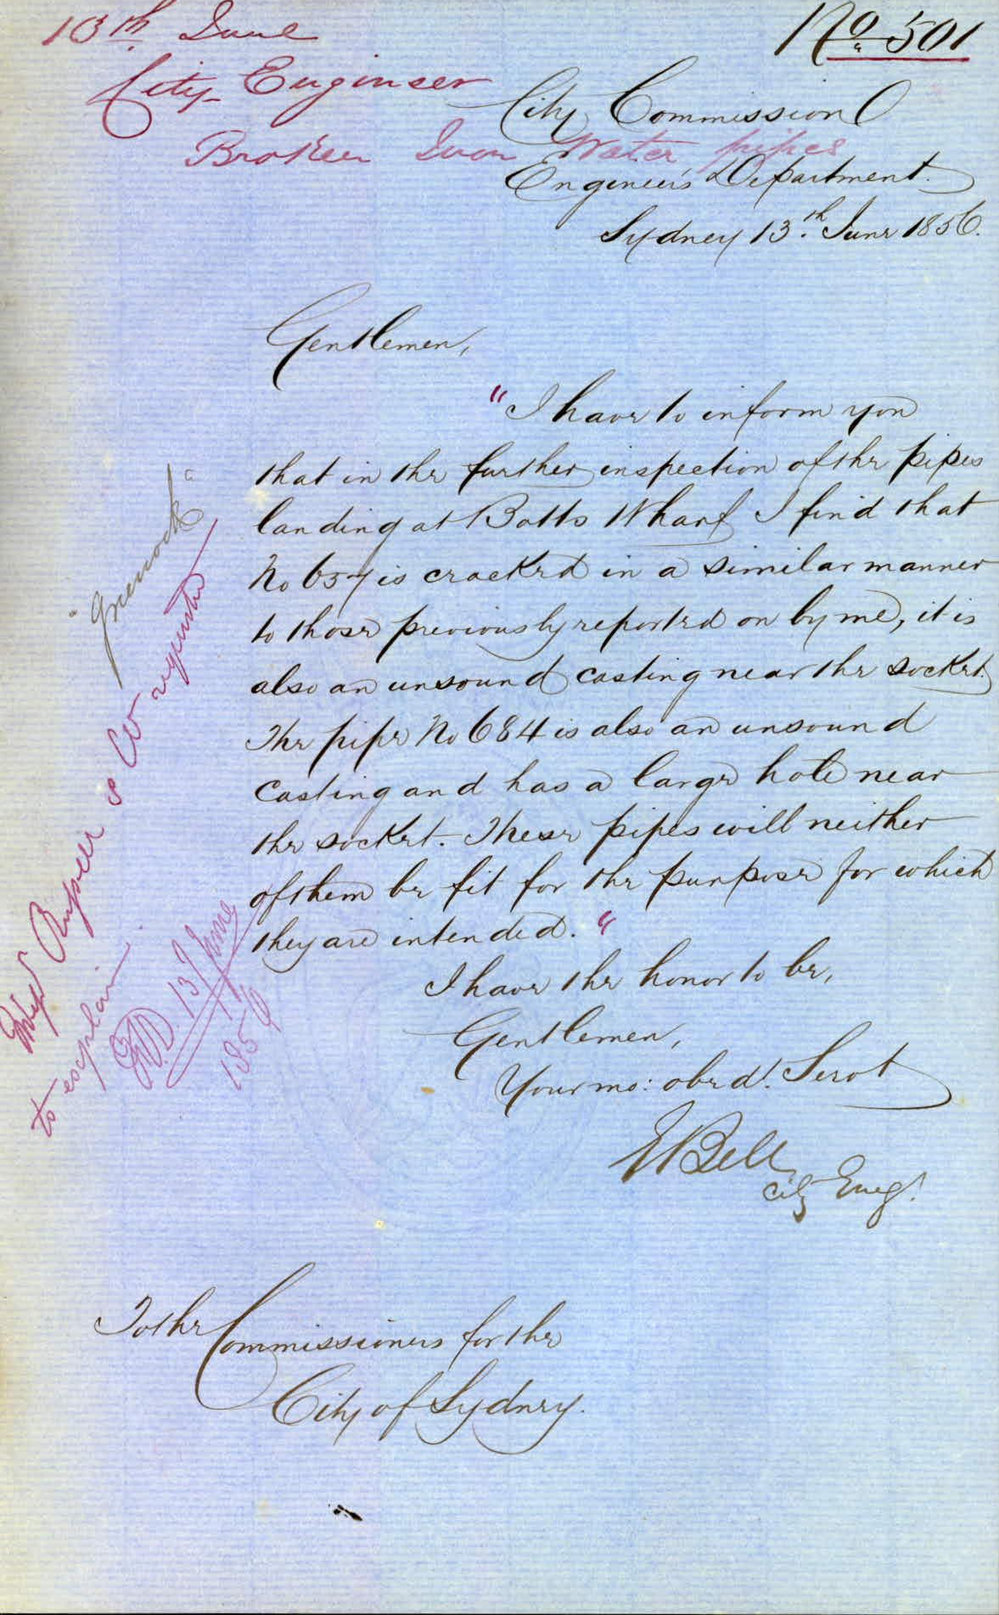 13th June
No. 501
City Engineer
City Commission
Broken Iron Water pipes
Engineers Department.
Sydney 13th June 1856.
Gentlemen,
"I have to inform you
that in the further inspection of the pipes
landing at Botts Wharf I find that
No 657 is cracked in a similar manner
to those previously reported on by me, it is
also an unsound casting near the socket.
The pipe No 684 is also an unsound
casting and has a large hole near
the socket. These pipes will neither
of them be fit for the purpose for which
they are intended."
I have the honor to be,
Gentlemen,
Your mo: obedt. Servt
EBell
City Engr.
To the Commissioners for the
City of Sydney.
"Greenock"
Messrs Russell & Co requested
to explain
13 June
1856